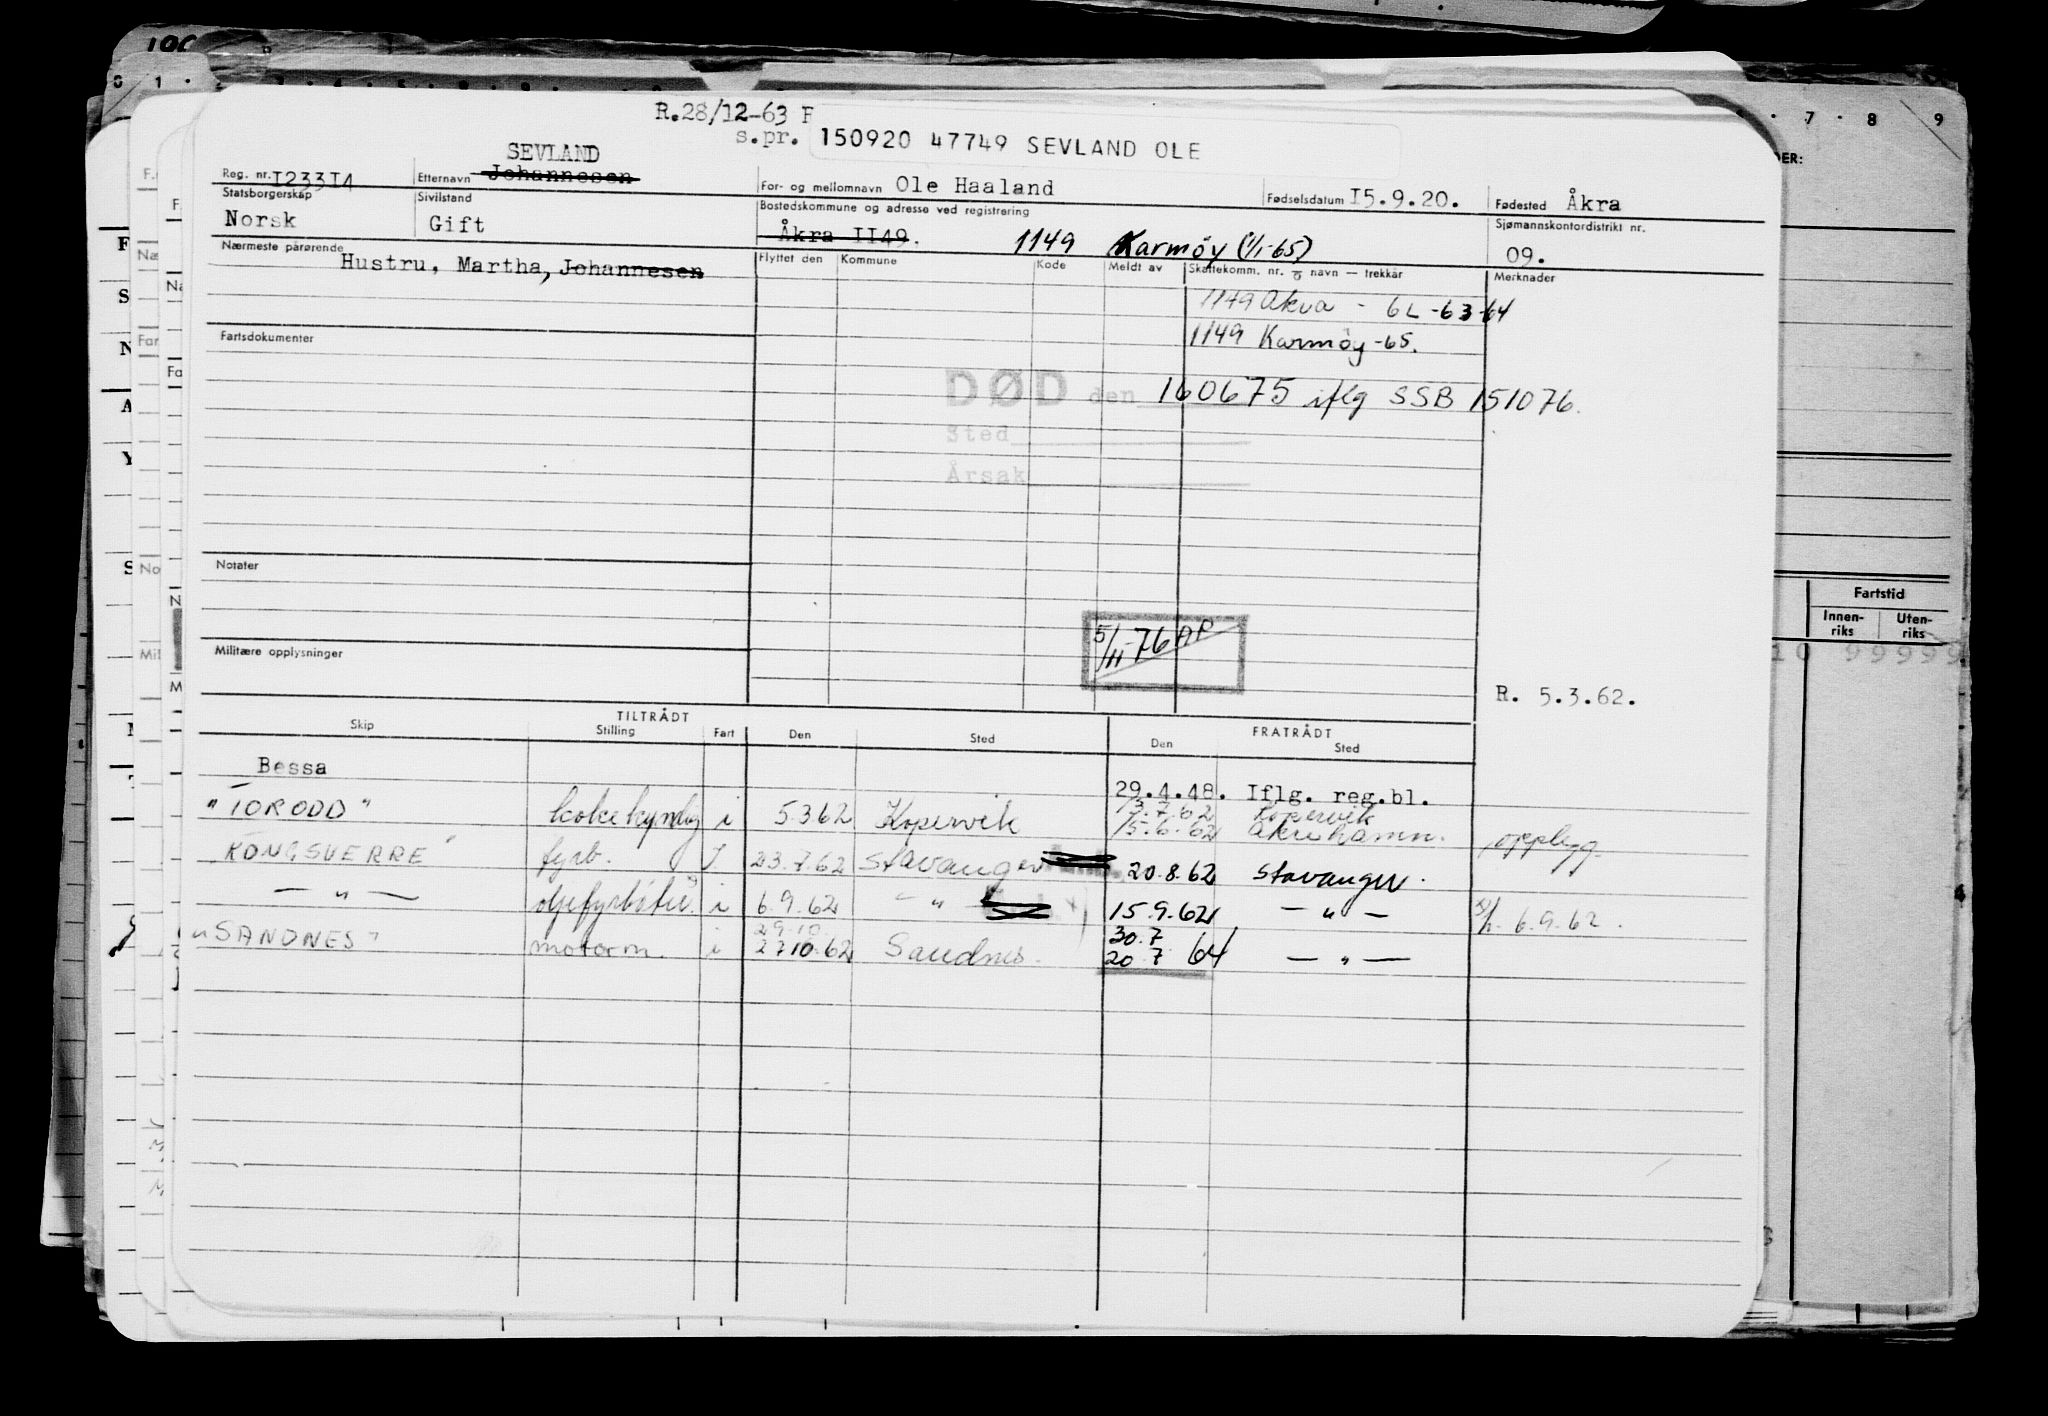 R.28/12-63 F
s.pr. 150920 47749 SEVLAND OLE
SEVLAND
Reg. nr. I233I4 Etternavn Johannesen For- og mellomnavn Ole Haaland Fødselsdatum I5.9.20. Fødested Åkra
Statsborgerskap Sivilstand Bostedskommune og adresse ved registrering Sjømannskontordistrikt nr.
Norsk Gift Åkra II49. 1149 Karmøy (1/1-65) 09.
Nærmeste pårørende Hustru, Martha, Johannesen
Flyttet den Kommune Kode Meldt av Skattekomm. nr. o navn — trekkår Merknader
1149 Åkra - 62-63-64
Fartsdokumenter
1149 Karmøy -65.
DØD den 160675 iflg SSB 151076.
Sted
Årsak
Notater
5/11-76 AP
Militære opplysninger
R. 5.3.62.
TILTRÅDT FRATRÅDT
Skip Stilling Fart Den Sted Den Sted
Bessa 29.4.48. Iflg. reg.bl.
13.7.62 Kopervik
"TORODD" i 5.3.62 Kopervik 15.6.62 Åkrehamn. opplegg.
"KONGSVERRE" fyrb. I 23.7.62 Stavanger 20.8.62 Stavanger.
— " — i 6.9.62 — " 15.9.62 — " — 6.9.62.
29.10. 30.7
"SANDNES" motorm. i 27.10.62 Sandnes. 20.7 64 — " —
Fartstid
Innen-riks Uten-riks
7 8 9
10 99999